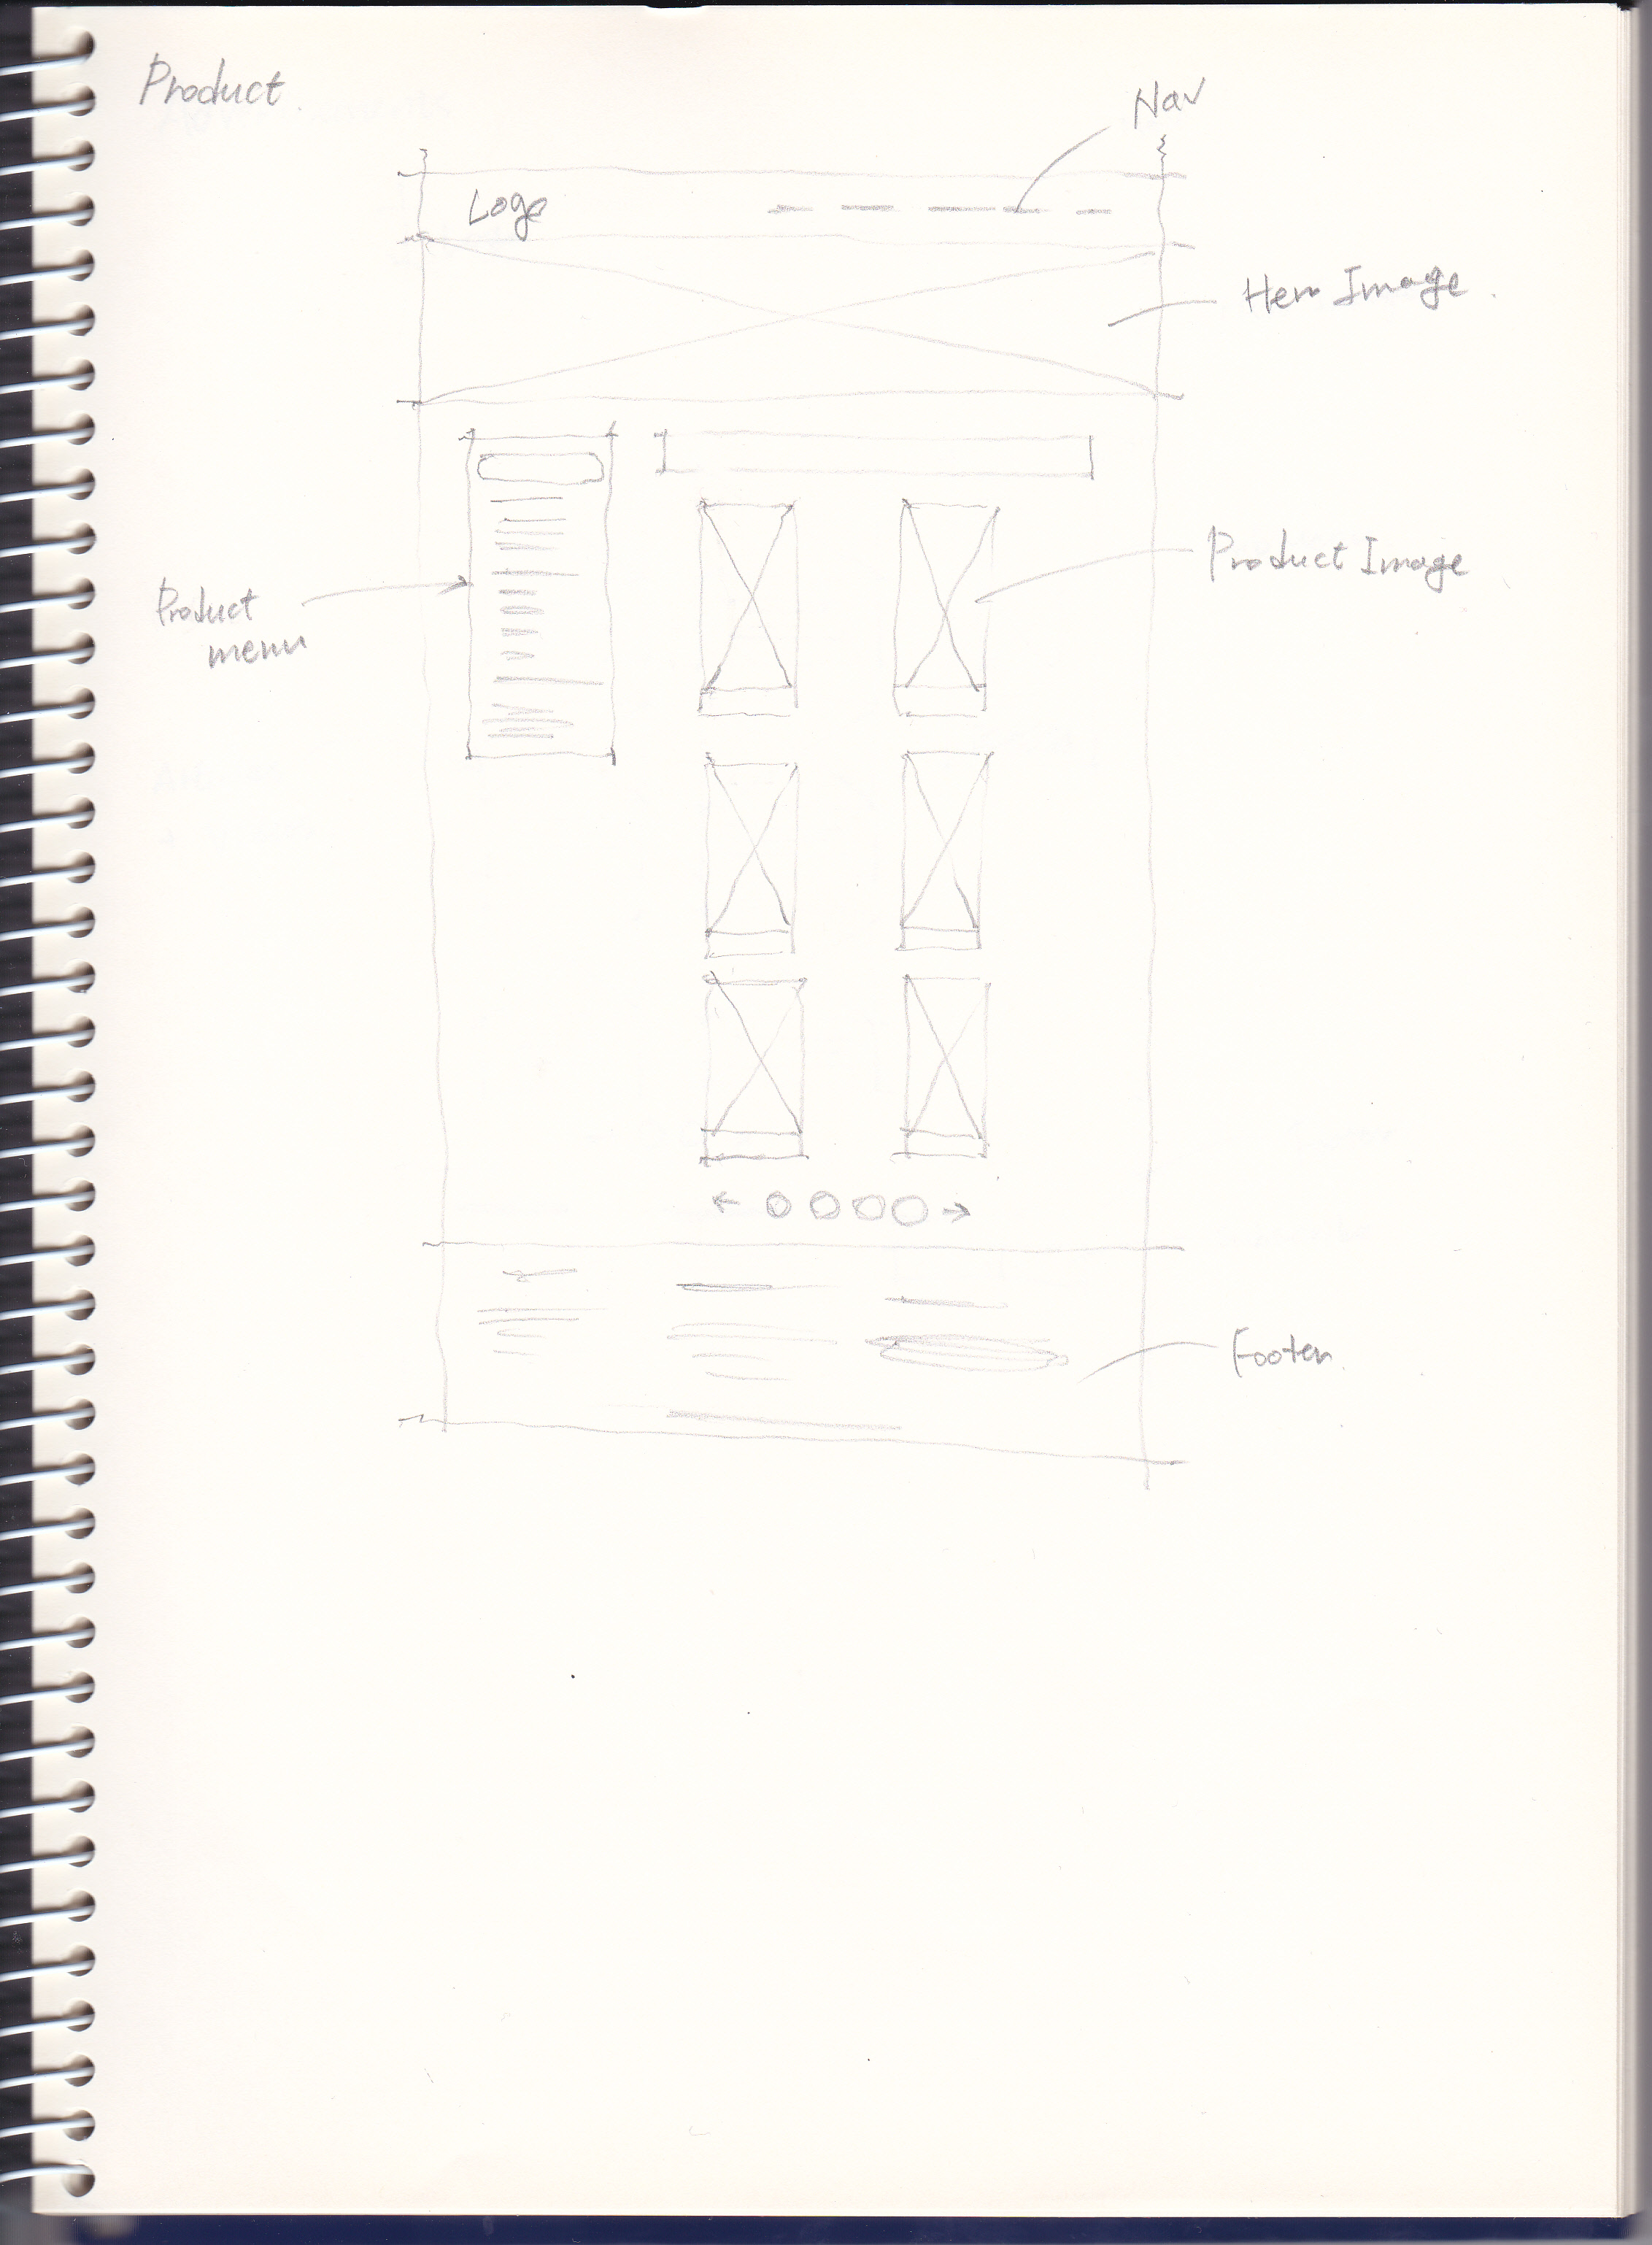 Product
Nav
Logo
Hero Image
Product Image
Product
menu
Footer